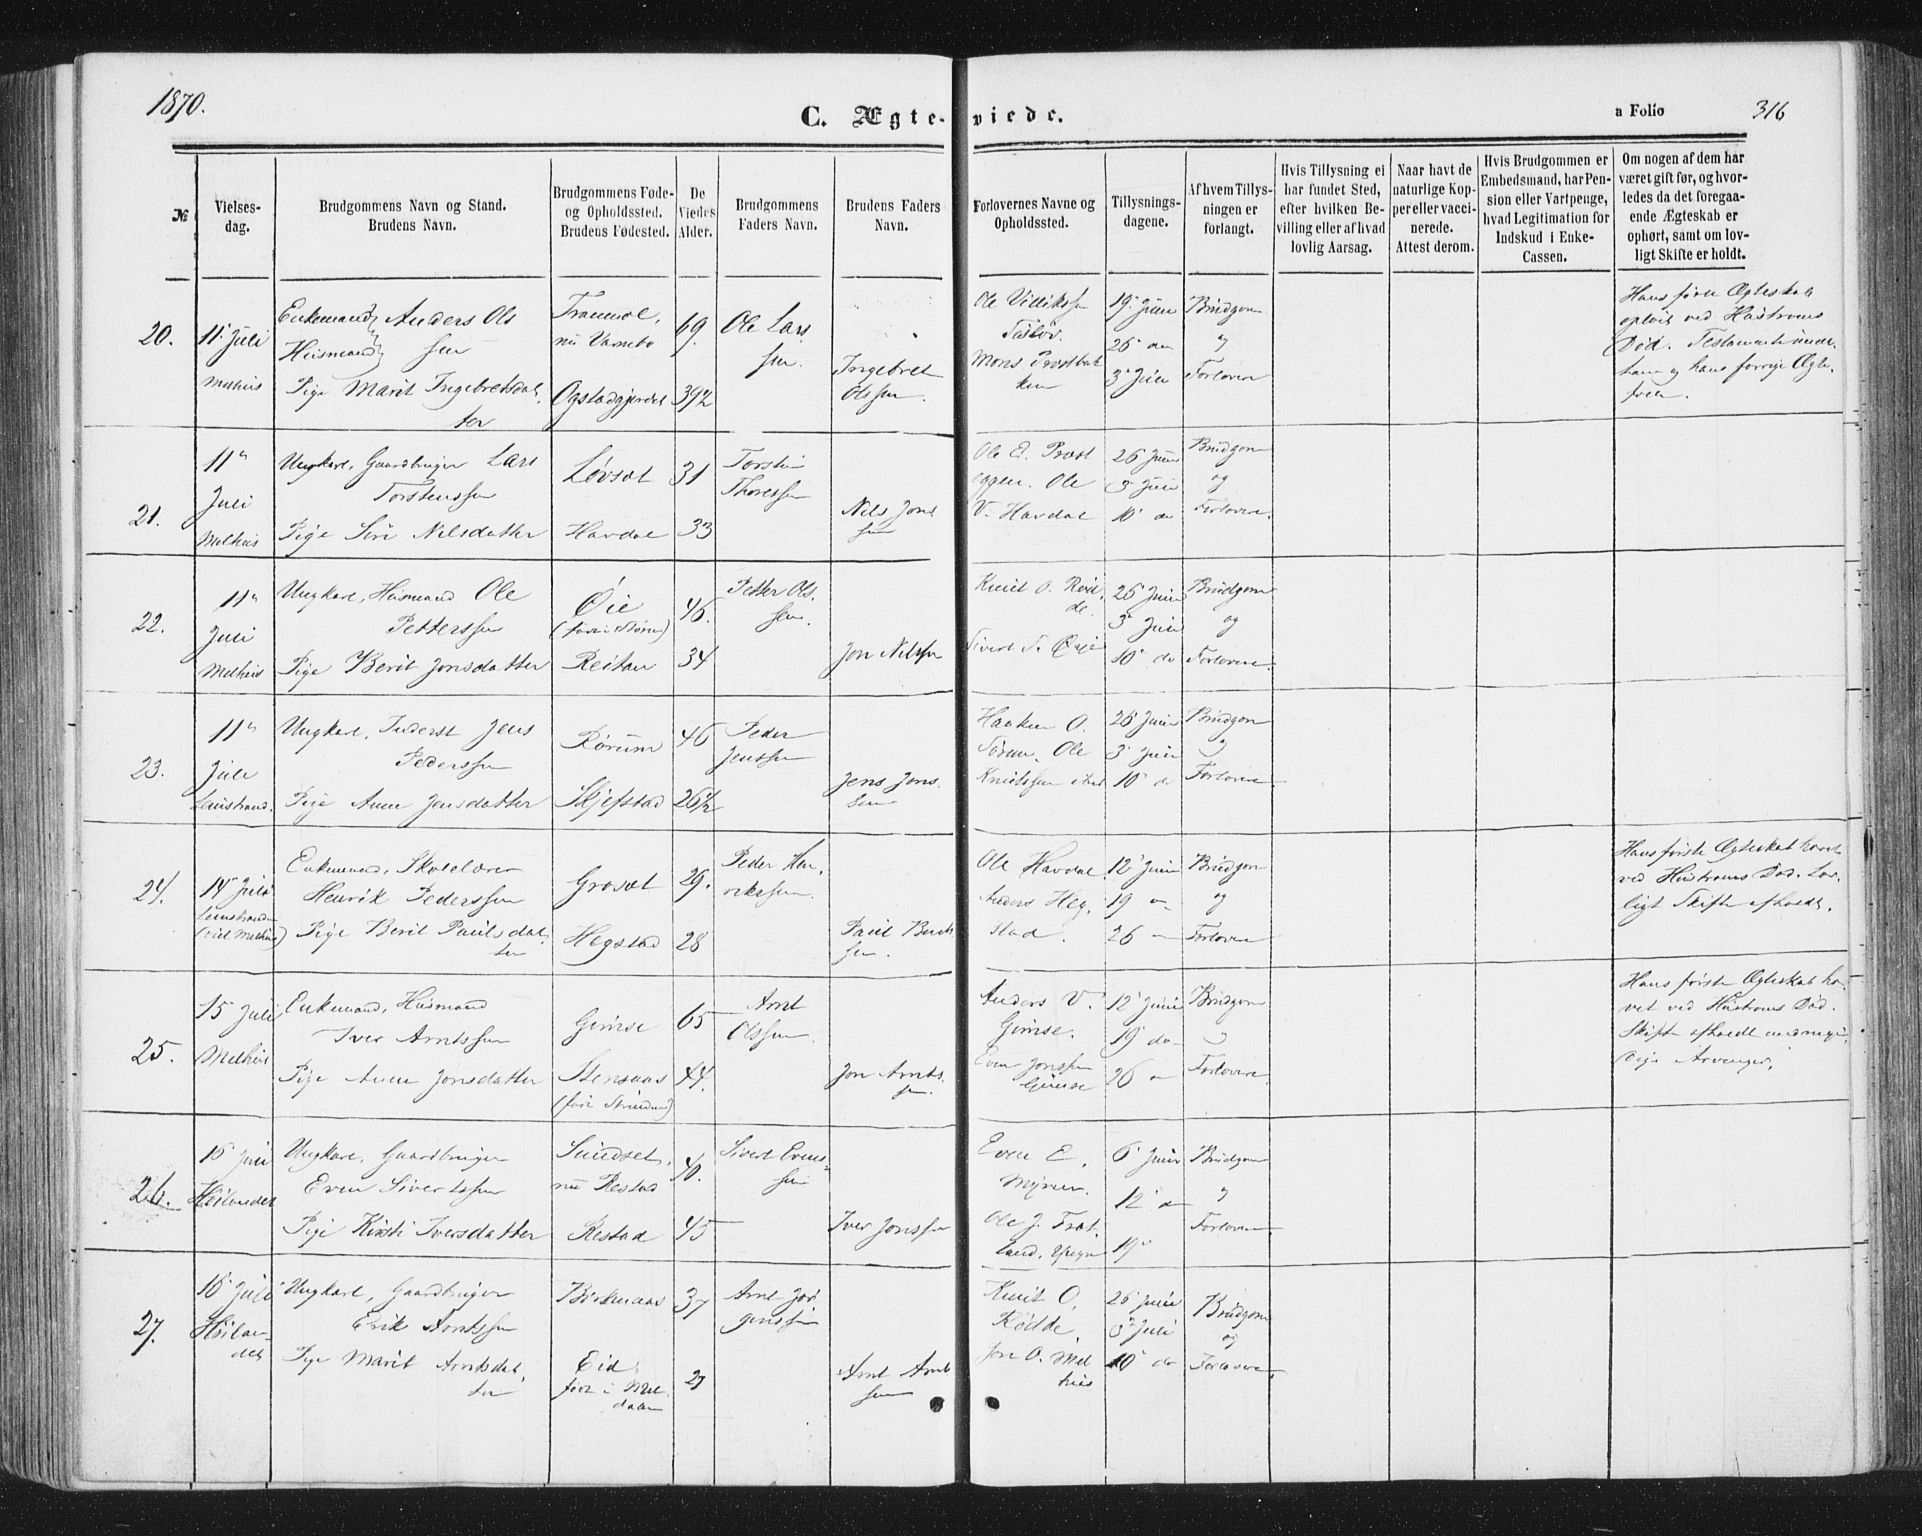 1870.
C. Ægte-viede.
a Folio 316
№
Vielses-
dag.
Brudgommens Navn og Stand.
Brudens Navn.
Brudgommens Føde-
og Opholdssted.
Brudens Fødested.
De
Viedes
Alder.
Brudgommens
Faders Navn.
Brudens Faders
Navn.
Forlovernes Navne og
Opholdssted.
Tillysnings-
dagene.
Af hvem Tillys-
ningen er
forlangt.
Hvis Tillysning ei
har fundet Sted,
efter hvilken Be-
villing eller af hvad
lovlig Aarsag.
Naar havt de
naturlige Kop-
per eller vacci-
nerede.
Attest derom.
Hvis Brudgommen er
Embedsmand, har Pen-
sion eller Vartpenge,
hvad Legitimation for
Indskud i Enke-
Cassen.
Om nogen af dem har
været gift før, og hvor-
ledes da det foregaa-
ende Ægteskab er
ophørt, samt om lov-
ligt Skifte er holdt.
20.
11 Juli
Melhus
Enkemand Anders Ols
Husmand sen
Pige Marit Ingebretsdat
ter
nu Varmbo
Øgstadgjerdet
69.
39½
Ole Lars
sen.
Ingebret
Olssen.
Ole
Mons
19 Juni
26 do
3 Juli
Brudgom
og
Forlovere
Hans første Ægteskab
opløst ved Hustruens
Død.
hans forrige Ægte-
21.
11
Juli
Melhus
Ungkarl, Gaardbruger Lars
Torstenssen
Pige Siri Nilsdatter
Løvset
Havdal
31
33
Torstin
Thoressen
Nils Jons
sen
Ole E. Præst
eggen. Ole
V. Havdal
26 Juni
3 Juli
10 do
Brudgom
og
Forlovere.
22.
11
Juli
Melhus
Ungkarl, Husmand Ole
Petterssen
Pige Berit Jonsdatter
Øie
(født i Støren)
Reitan
46.
34
Petter Ols.
sen.
Jon Nilssen
Knut O. Rød
de.
Sivert Øie
26 Juni
3 Juli
10 do
Brudgom
og
Forlovere.
23.
11
Juli
Leinstrand.
Ungkarl, Inderst Jens
Pederssen
Pige Anne Jensdatter
Rørum
Skjefstad
46
26½
Peder
Jenssen
Jens Jons.
sen
Haaken O.
Ole
Knutssen
26 Juni
3 Juli
10 do
Brudgom
og
Forlovere
24.
14 Juli
Leinstranden
(viet Melhus)
Enkemand, Skolelærer
Henrik Pederssen
Pige Berit Paulsdat
ter
Grosæt
Hegstad
29.
28
Peder Hen,
rikssen
Paul
sen.
Ole Havdal
Anders Heg,
stad.
12 Juni
19 —
26 —
Brudgom
og
Forlovere
Hans første Ægteskab hævet
ved Hustruens Død. Lov-
ligt Skifte afholdt.
25.
15 Juli
Melhus
Enkemand, Husmand
Iver Arntssen
Pige Anne Jonsdatter
Gimse
Stensaas
65
44.
Arnt
Olssen.
Jon Arnts.
sen.
Anders V.
Gimse.
Even Jonssen
Gimse
12 Juni
19 do
26 —
Brudgom
og
Forlovere.
Hans første Ægteskab hæ-
vet ved Hustruens Død.
Skifte afholdt
Arvinger.
26.
Høilandet
Ungkarl, Gaardbruger
Even Sivertssen
Pige Kirsti Iversdatter
Sundset,
nu Restad
Restad
40.
45
Sivert Evens
sen
Iver Jonssen
Even E.
Myren.
Ole J.
6 Juni
12 do
19
Brudgom
og
Forlovere
27.
16 Juli
Høilan-
det
Ungkarl, Gaardbruger
Erik Arntssen
Pige Marit Arntsdat,
ter
Eid
født i Mel
dalen
37
Arnt Jør
genssen
Arnt Arnt
sen
Knut O.
Rødde
Jon O. Mel
hus
26 Juni
3 Juli
10 do
Brudgom
og
Forlovere.